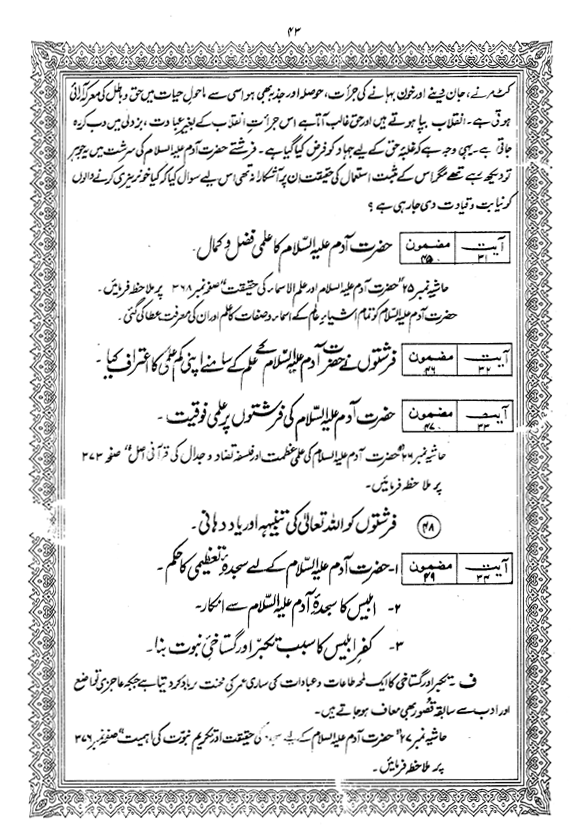 ۴۳
کٹ مرنے، جان دینے اور خون بہانے کی جرأت، حوصلہ اور جذبہ بھی ہو اسی سے ماحولِ حیات میں حق و باطل کی معرکہ آرائی
ہوتی ہے۔ انقلاب بپا ہوتے ہیں اور حق غالب آتا ہے اس جرأتِ انقلاب کے بغیر عبادت، بزدلی میں دب کر رہ
جاتی ہے۔ یہی وجہ ہے کہ غلبۂ حق کے لیے جہاد کو فرض کیا گیا ہے۔ فرشتے حضرت آدم علیہ السلام کی سرشت میں یہ جوہر
تو دیکھ رہے تھے مگر اس کے مثبت استعمال کی حقیقت ان پر آشکارا نہ تھی اس لیے سوال کیا کہ کیا خونریزی کرنے والوں
کو نیابت و قیادت دی جا رہی ہے ؟
آیت ۳۱ مضمون ۴۵ حضرت آدم علیہ السّلام کا علمی فضل و کمال۔
حاشیہ نمبر ۲۵ "حضرت آدم علیہ السلام اور علم الاسماء کی حقیقت" صفحہ نمبر ۳۶۸ پر ملاحظہ فرمائیں۔
حضرت آدم علیہ السّلام کو تمام اشیائے عالم کے اسماء و صفات کا علم اور ان کی معرفت عطا کی گئی۔
آیت ۳۲ مضمون ۴۶ فرشتوں نے حضرت آدم علیہ السّلام کے علم کے سامنے اپنی کم علمی کا اعتراف کیا۔
آیت ۳۳ مضمون ۴۷ حضرت آدم علیہ السّلام کی فرشتوں پر علمی فوقیت۔
حاشیہ نمبر ۲۶ "حضرت آدم علیہ السلام کی علمی عظمت اور فلسفہ تضاد و جدال کی قرآنی اصل" صفحہ ۳۷۳
پر ملاحظہ فرمائیں۔
۴۸ فرشتوں کو اللہ تعالیٰ کی تنبیہہ اور یاد دہانی۔
آیت ۳۴ مضمون ۴۹ ۱- حضرت آدم علیہ السّلام کے لیے سجدۂ تعظیمی کا حکم۔
۲- ابلیس کا سجدۂ آدم علیہ السّلام سے انکار۔
۳- کفرِ ابلیس کا سبب تکبّر اور گستاخیٔ نبوت بنا۔
ف۔ تکبر اور گستاخی کا ایک لمحہ طاعات و عبادات کی ساری عمر کی محنت برباد کر دیتا ہے جبکہ عاجزی تواضع
اور ادب سے سابقہ قصور بھی معاف ہو جاتے ہیں۔
حاشیہ نمبر ۲۷ "حضرت آدم علیہ السلام کے لیے کی حقیقت اور تکریم نبوت کی اہمیت" صفحہ نمبر ۳۷۶
پر ملاحظہ فرمائیں۔